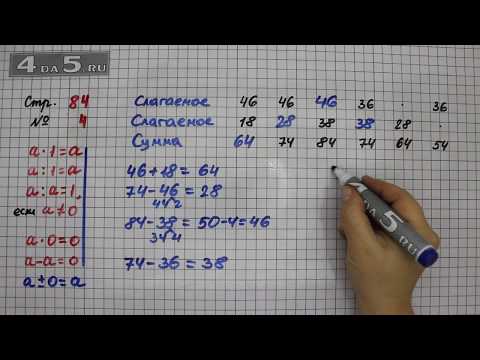 4DA5.RU
Стр. 84
№ 4
a · 1 = a
a : 1 = a
a : a = 1,
если a ≠ 0
a · 0 = 0
a - a = 0
a ± 0 = a
Слагаемое 46 46 46 36 · 36
Слагаемое 18 28 38 38 28 ·
Сумма 64 74 84 74 64 54
46 + 18 = 64
74 - 46 = 28
44 2
84 - 38 = 50 - 4 = 46
34 4
74 - 36 = 38
4DA5.RU